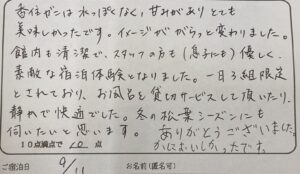 香住ガニは水っぽくなく、甘みがありとても
美味しかったです。イメージががらっと変わりました。
館内も清潔で、スタッフの方も(息子にも)優しく、
素敵な宿泊体験となりました。一日3組限定
とされており、お風呂も貸切サービスして頂いたり、
静かで快適でした。冬の松葉シーズンにも
伺いたいと思います。ありがとうございました。
かにおいしかったです。
10点満点で 10 点
ご宿泊日 9/11 お名前(匿名可)